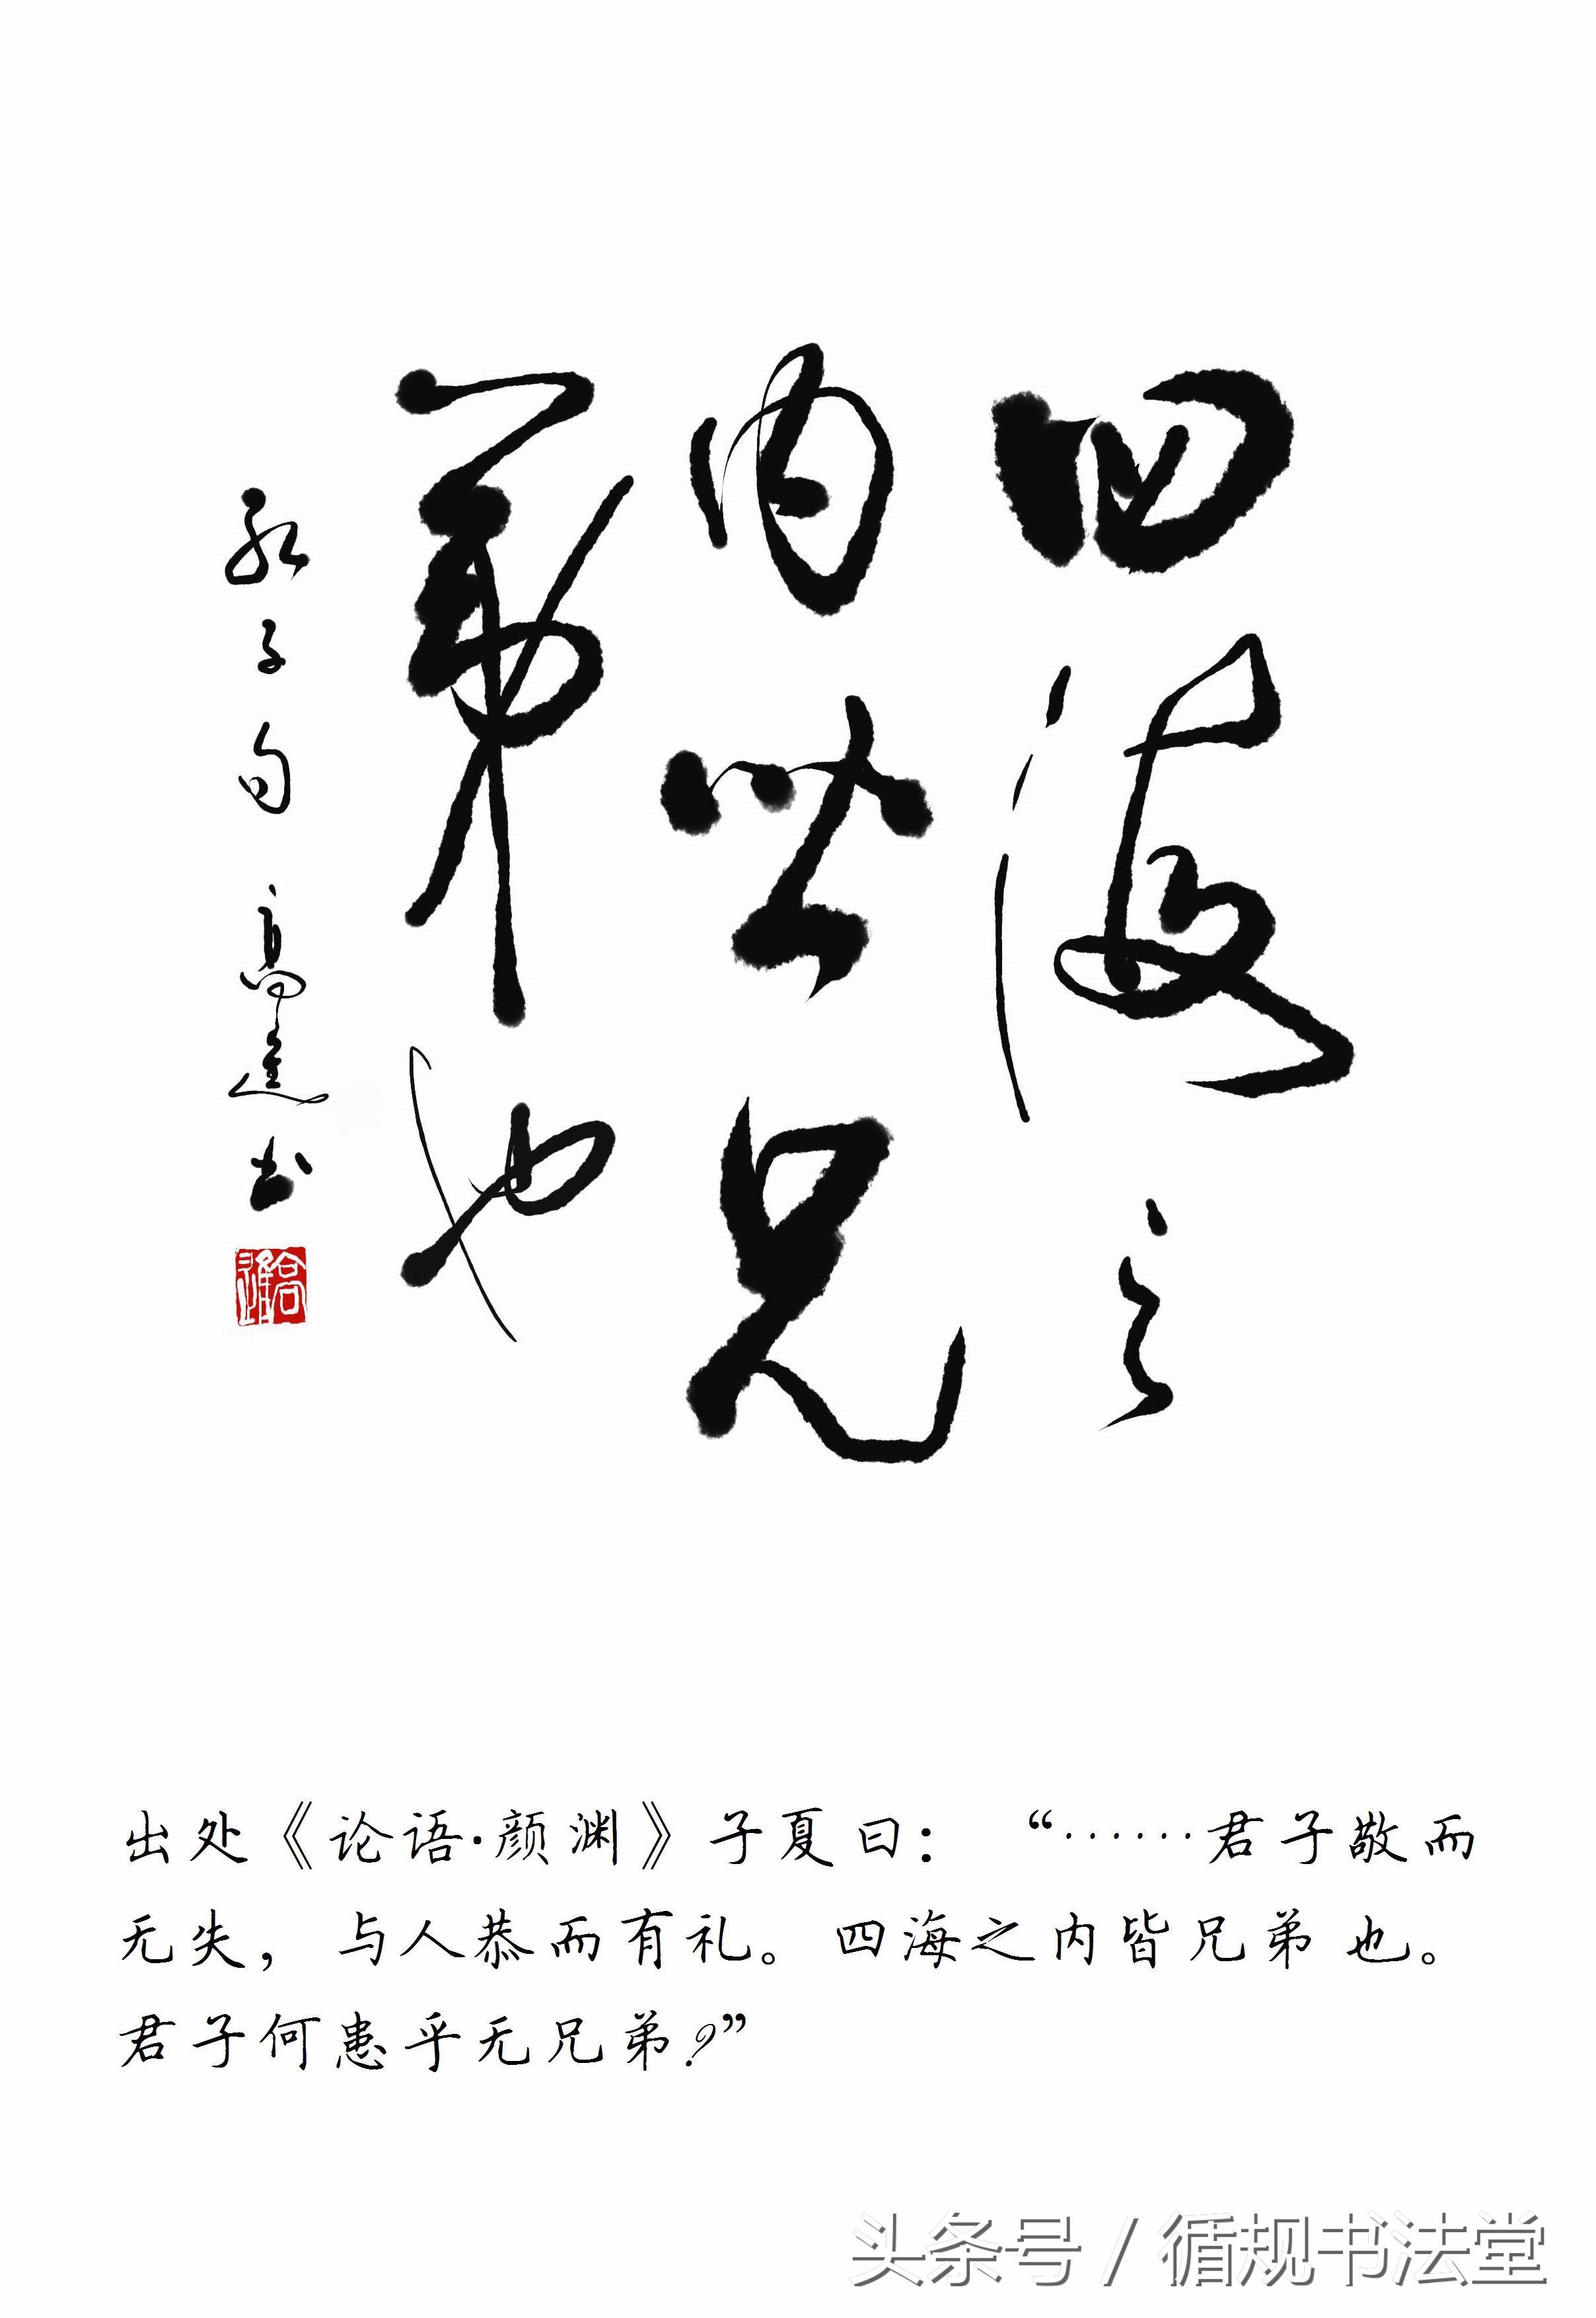 四海之
内皆兄
弟也
孔子句 高進书
高進
出处《论语·颜渊》子夏曰：“······君子敬而
无失，与人恭而有礼。四海之内皆兄弟也。
君子何患乎无兄弟？”
头条号 / 循规书法堂